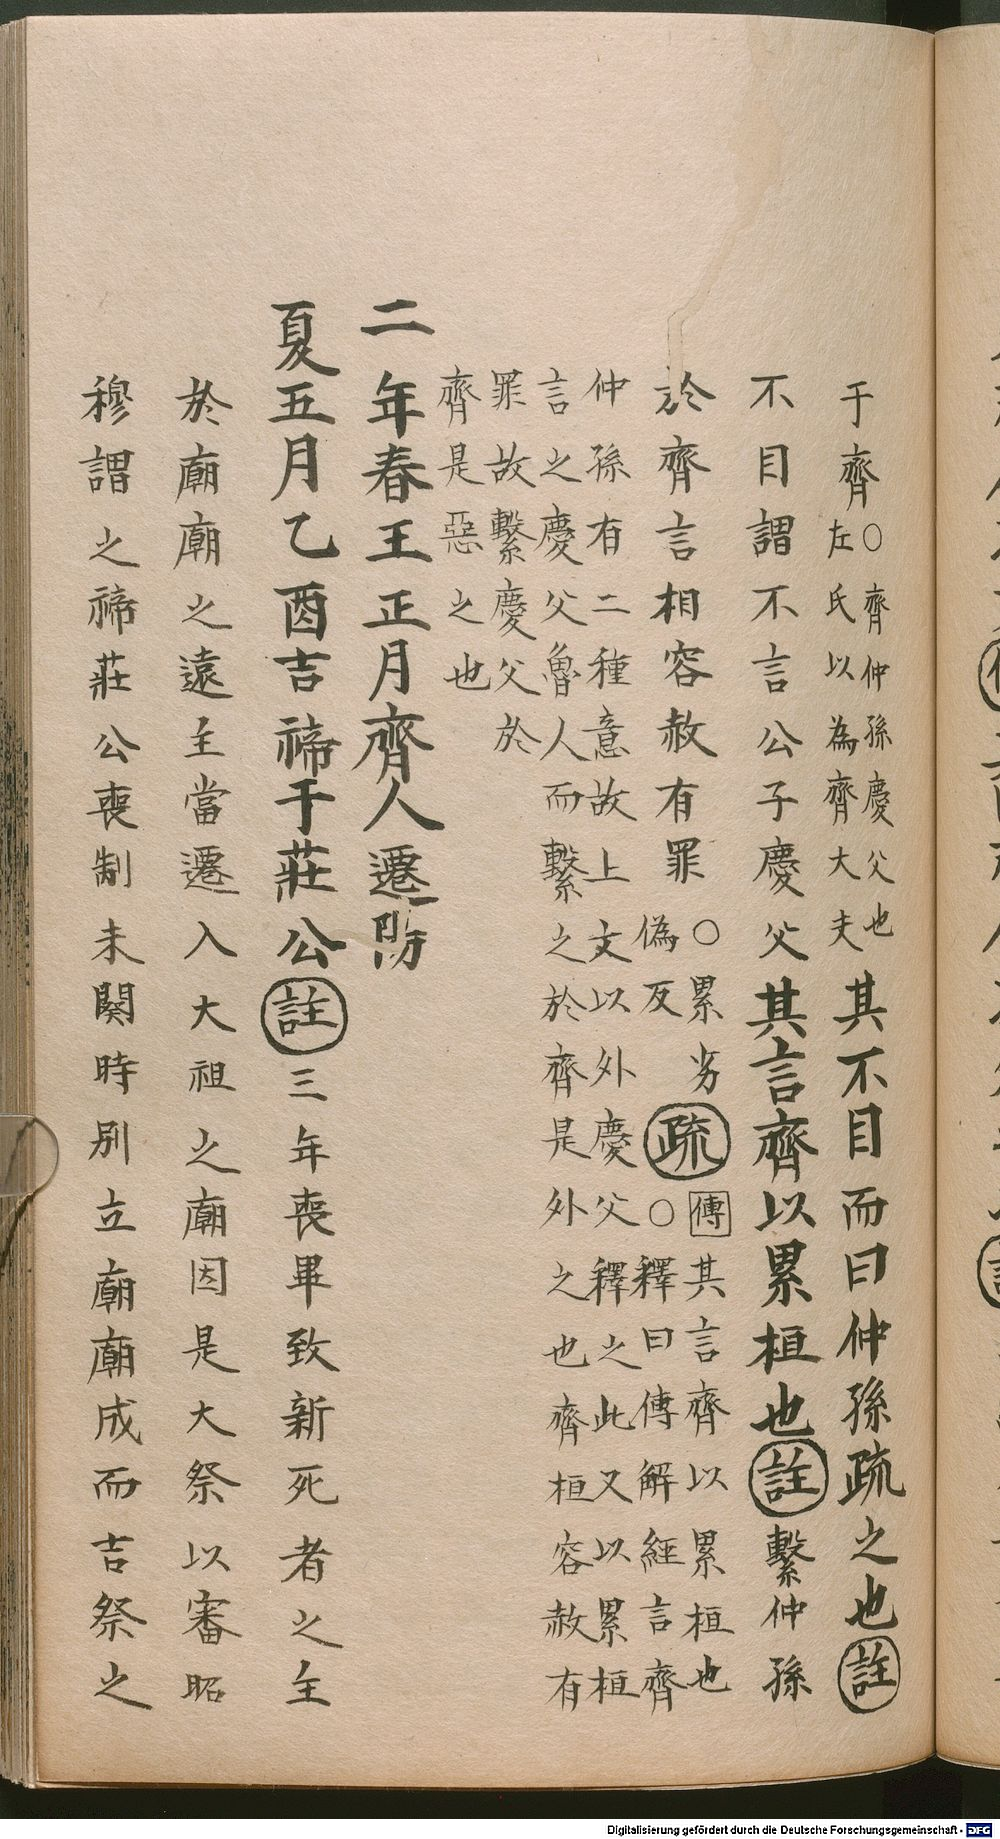 于齊○齊仲孫慶父也左氏以為齊大夫其不目而曰仲孫疏之也註
不目謂不言公子慶父其言齊以累桓也註繫仲孫
於齊言相容赦有罪○累劣偽反疏傳其言齊以累桓也○釋曰傳解經言齊
仲孫有二種意故上文以外慶父釋之此又以累桓
言之慶父魯人而繫之於齊是外之也齊桓容赦有
罪故繫慶父於
齊是惡之也
二年春王正月齊人遷陽
夏五月乙酉吉禘于莊公註三年喪畢致新死者之主
於廟廟之遠主當遷入大祖之廟因是大祭以審昭
穆謂之禘莊公喪制未闋時別立廟廟成而吉祭之
Digitalisierung gefördert durch die Deutsche Forschungsgemeinschaft - DFG